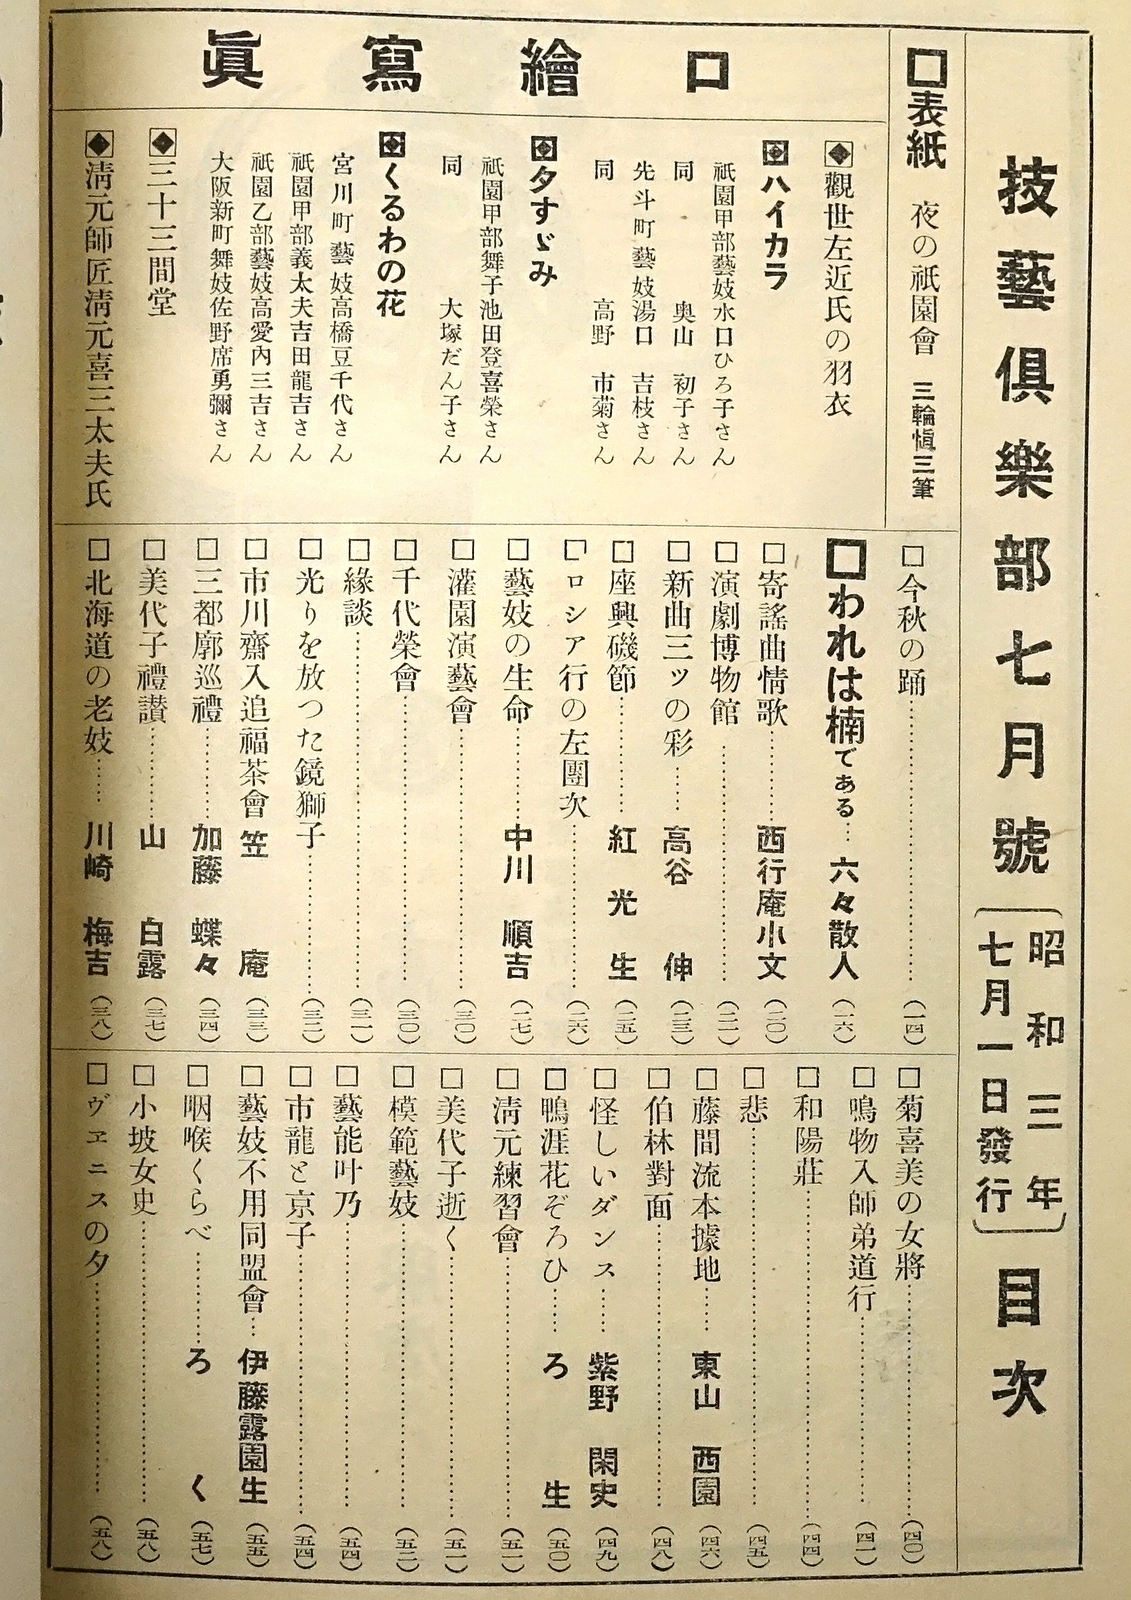 技藝倶樂部七月號
昭和三年
七月一日發行
目次
□表紙 夜の祇園會 三輪愼三筆
口繪寫眞
觀世左近氏の羽衣
ハイカラ
祇園甲部藝妓水口ひろ子さん
同 奥山 初子さん
先斗町藝妓湯口 吉枝さん
同 高野 市菊さん
夕すゞみ
祇園甲部舞子池田登喜榮さん
同 大塚だん子さん
くるわの花
宮川町藝妓高橋豆千代さん
祇園甲部義太夫吉田龍吉さん
祇園乙部藝妓高愛內三吉さん
大阪新町舞妓佐野席勇彌さん
三十三間堂
淸元師匠淸元喜三太夫氏
□今秋の踊……(一四)
□われは楠である…六々散人(一六)
□寄謠曲情歌……西行庵小文(二〇)
□演劇博物館……(二一)
□新曲三ツの彩……高谷 伸(二三)
□座興磯節……紅 光 生(二五)
□ロシア行の左團次……(二六)
□藝妓の生命……中川 順吉(二七)
□灌園演藝會……(三〇)
□千代榮會……(三〇)
□緣談……(三一)
□光りを放つた鏡獅子……(三二)
□市川齋入追福茶會 笠 庵(三三)
□三都廓巡禮……加藤 蝶々(三四)
□美代子禮讃……山 白露(三七)
□北海道の老妓……川崎 梅吉(三八)
□菊喜美の女將……(四〇)
□鳴物入師弟道行……(四一)
□和陽莊……(四四)
□悲……(四五)
□藤間流本據地……東山 西園(四六)
□伯林對面……(四八)
□怪しいダンス……紫野 閑史(四九)
□鴨涯花ぞろひ……ろ 生(五〇)
□淸元練習會……(五一)
□美代子逝く……(五一)
□模範藝妓……(五二)
□藝能叶乃……(五四)
□市龍と京子……(五四)
□藝妓不用同盟會…伊藤露園生(五五)
□咽喉くらべ……ろ く(五七)
□小坡女史……(五八)
□ヴェニスの夕……(五八)